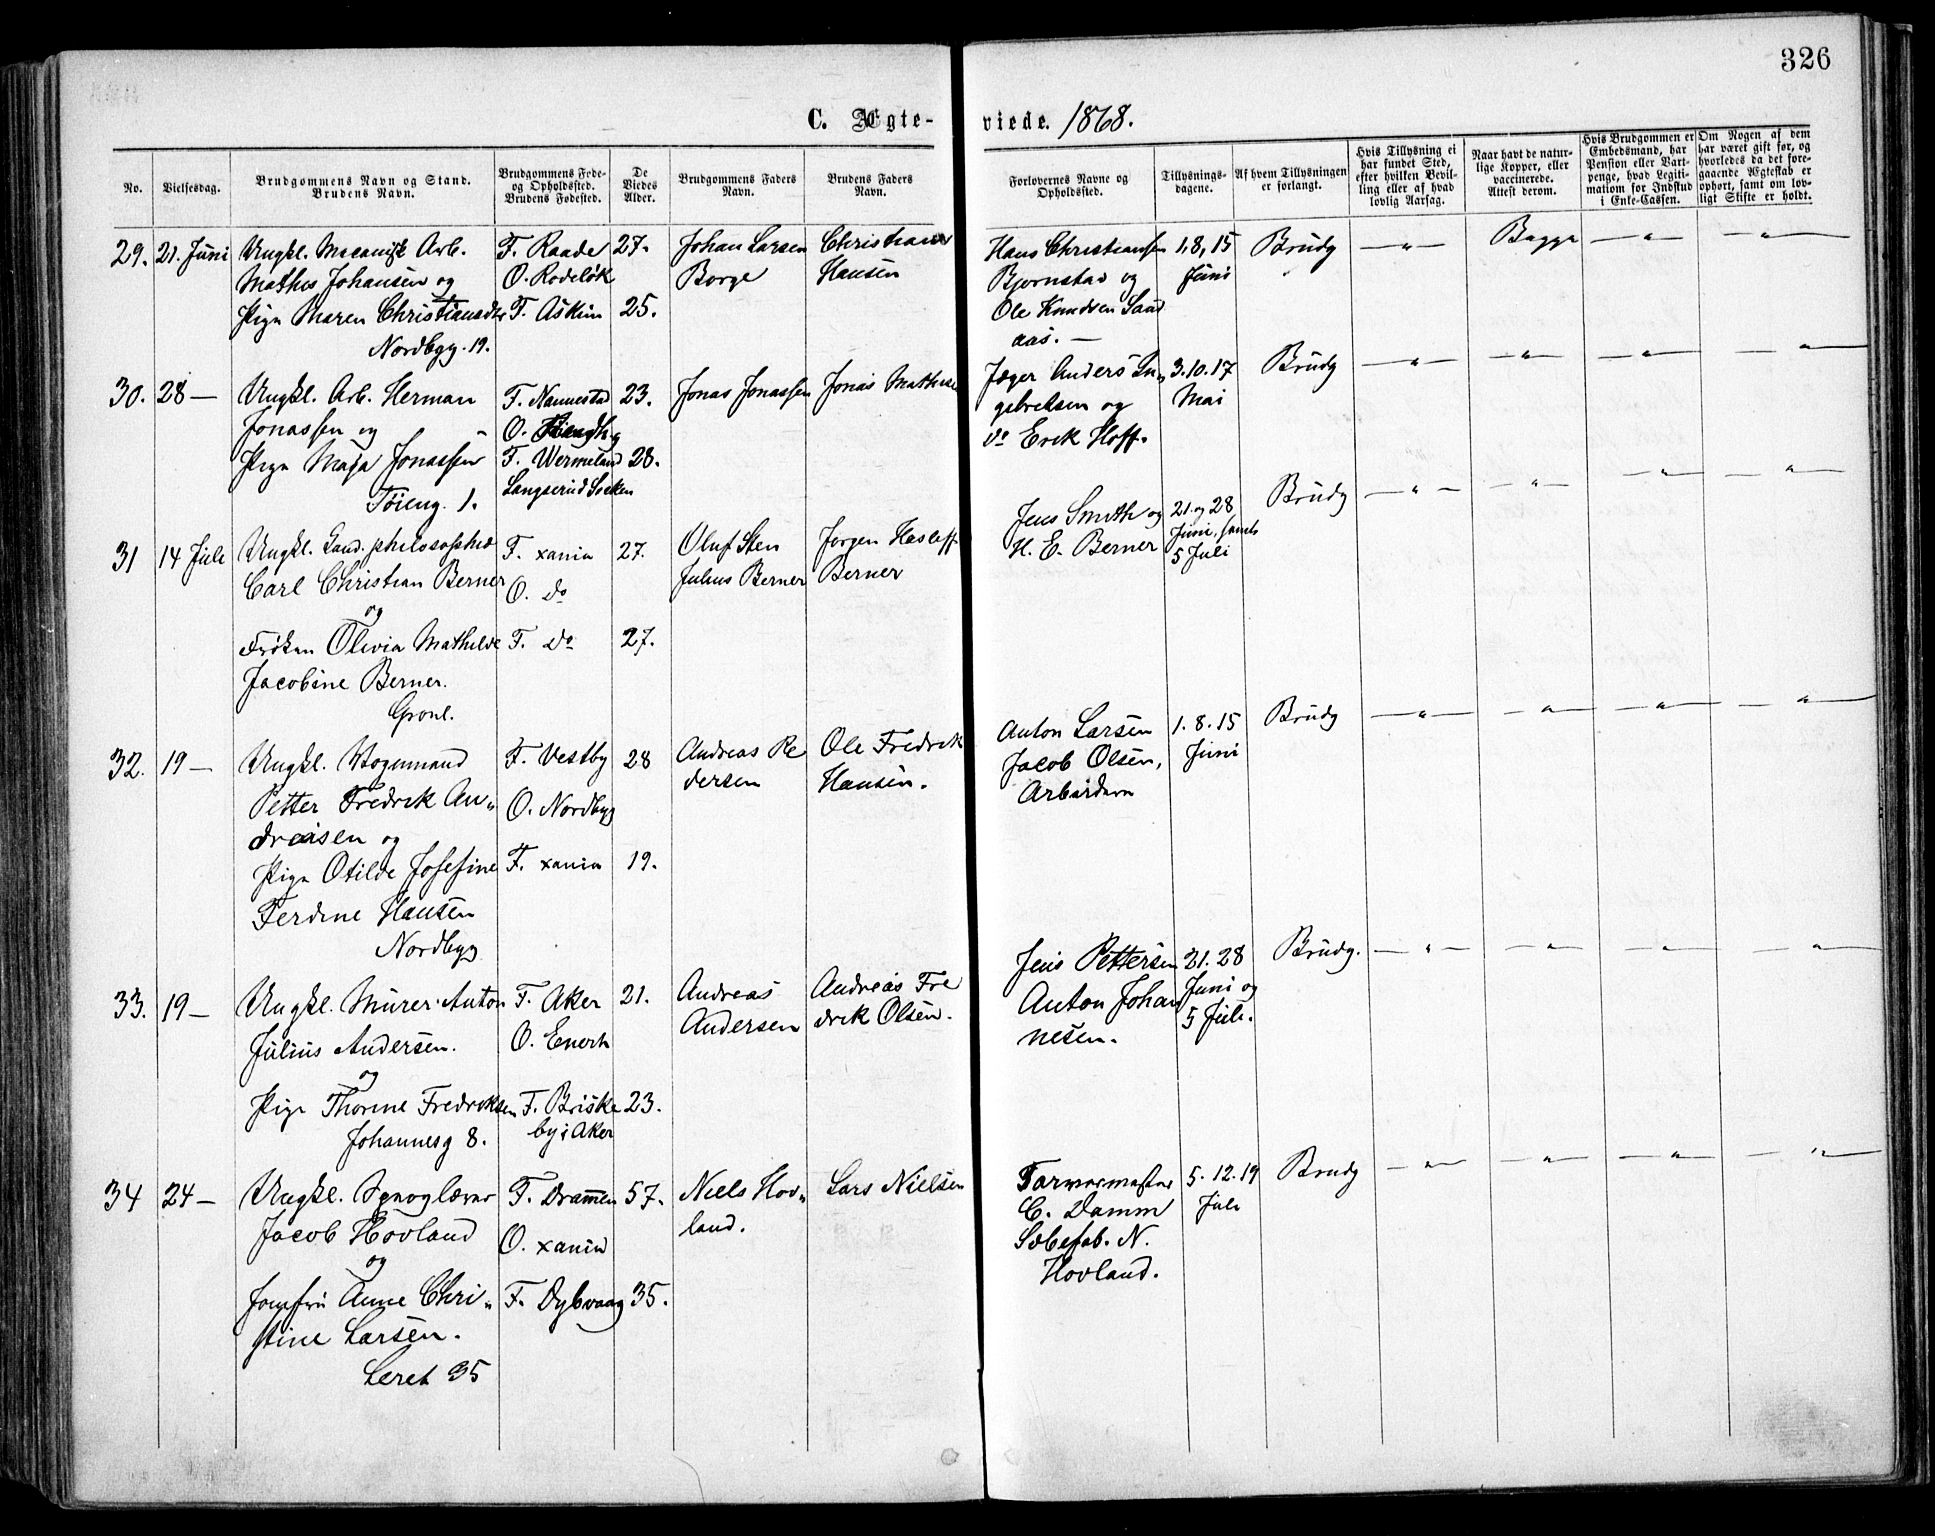 326
C. Ægte-viede. 1868.
No.
Vielsesdag.
Brudgommens Navn og Stand.
Brudens Navn.
Brudgommens Føde-
og Opholdssted.
Brudens Fødested.
De
Viedes
Alder.
Brudgommens Faders
Navn.
Brudens Faders
Navn.
Forlovernes Navne og
Opholdssted.
Tillysnings-
dagene.
Af hvem Tillysningen
er forlangt.
Hvis Tillysning ei
har fundet Sted,
efter hvilken Bevil-
ling eller af hvad
lovlig Aarsag.
Naar havt de natur-
lige Kopper, eller
vaccinerede.
Attest derom.
Hvis Brudgommen er
Embedsmand, har
Pension eller Vart-
penge, hvad Legiti-
mation for Indskud
i Enke-Cassen.
Om Nogen af dem
har været gift før, og
hvorledes da det fore-
gaaende Ægteskab er
ophørt, samt om lov-
ligt Skifte er holdt.
29. 21. Juni
Ungkl. Mecanisk Arb.
Mathis Johansen og
Pige Maren Christiansdtr
Nordbyg. 19.
F. Raade
O. Rodeløk
F. Askim
27.
25.
Johan Larsen
Borge
Christian
Hansen
Hans Christiansen
Bjørnstad og
Ole Knudsen Sand
aas. —
1, 8, 15
Juni
Brudg
— " —
Bagge
— " —
— " —
30. 28 —
Ungkl. Arb. Herman
Jonassen og
Pige Maja Jonassen
Tøieng. 1.
F. Nannestad
O.
F. Wermeland
Langserud Socken
23.
28.
Jonas Jonassen
Jonas Mathisen
Jæger Anders In„
gebretsen og
do Erik Hoff.
3. 10. 17
Mai
Brudg
— " —
— " —
— " —
— " —
31 14 Juli
Ungkl. Cand. philosophiæ
Carl Christian Berner
og
Frøken Olivia Mathilde
Jacobine Berner.
Grønl.
F. xania
O. do
F. do
27.
27.
Oluf Sten
Julius Berner
Jørgen Hesleff
Berner
Jens Smith og
H. E. Berner
21. og 28
Juni, samt
5 Juli
Brudg
— " —
— " —
— " —
— " —
32. 19 —
Ungkl. Vognmand
Petter Fredrik An„
dreasen og
Pige Otilde Josefine
Ferdine Hansen
Nordbyg
F. Vestby
O. Nordbyg
F. xania
28
19.
Andreas Pe
dersen
Ole Fredrik
Hansen.
Anton Larsen
Jacob Olsen,
Arbeidere
1. 8. 15
Juni
Brudg
— " —
— " —
— " —
— " —
33. 19 —
Ungkl. Murer Anton
Julius Andersen.
og
Pige Thorine Fredriksen
Johannesg 8.
F. Aker
O. Enerh
F. Briske
by i Aker
21.
23.
Andreas
Andersen
Andreas Fre
drik Olsen.
Jens Pettersen
Anton Johan
nesen.
21. 28
Juni og
5 Juli.
Brudg.
— " —
— " —
— " —
— " —
34 24 —
Ungkl. Sproglærer
Jacob Hovland
og
Jomfru Anne Chri„
stine Larsen.
Leret 35
F. Drammen
O. xania
F. Dybvaag
57.
35.
Niels Hov„
land.
Lars Nielsen
Farvermester
C. Damm
Sæbefab. N.
Hovland.
5. 12. 19
Juli
Brudg
— " —
— " —
— " —
— " —